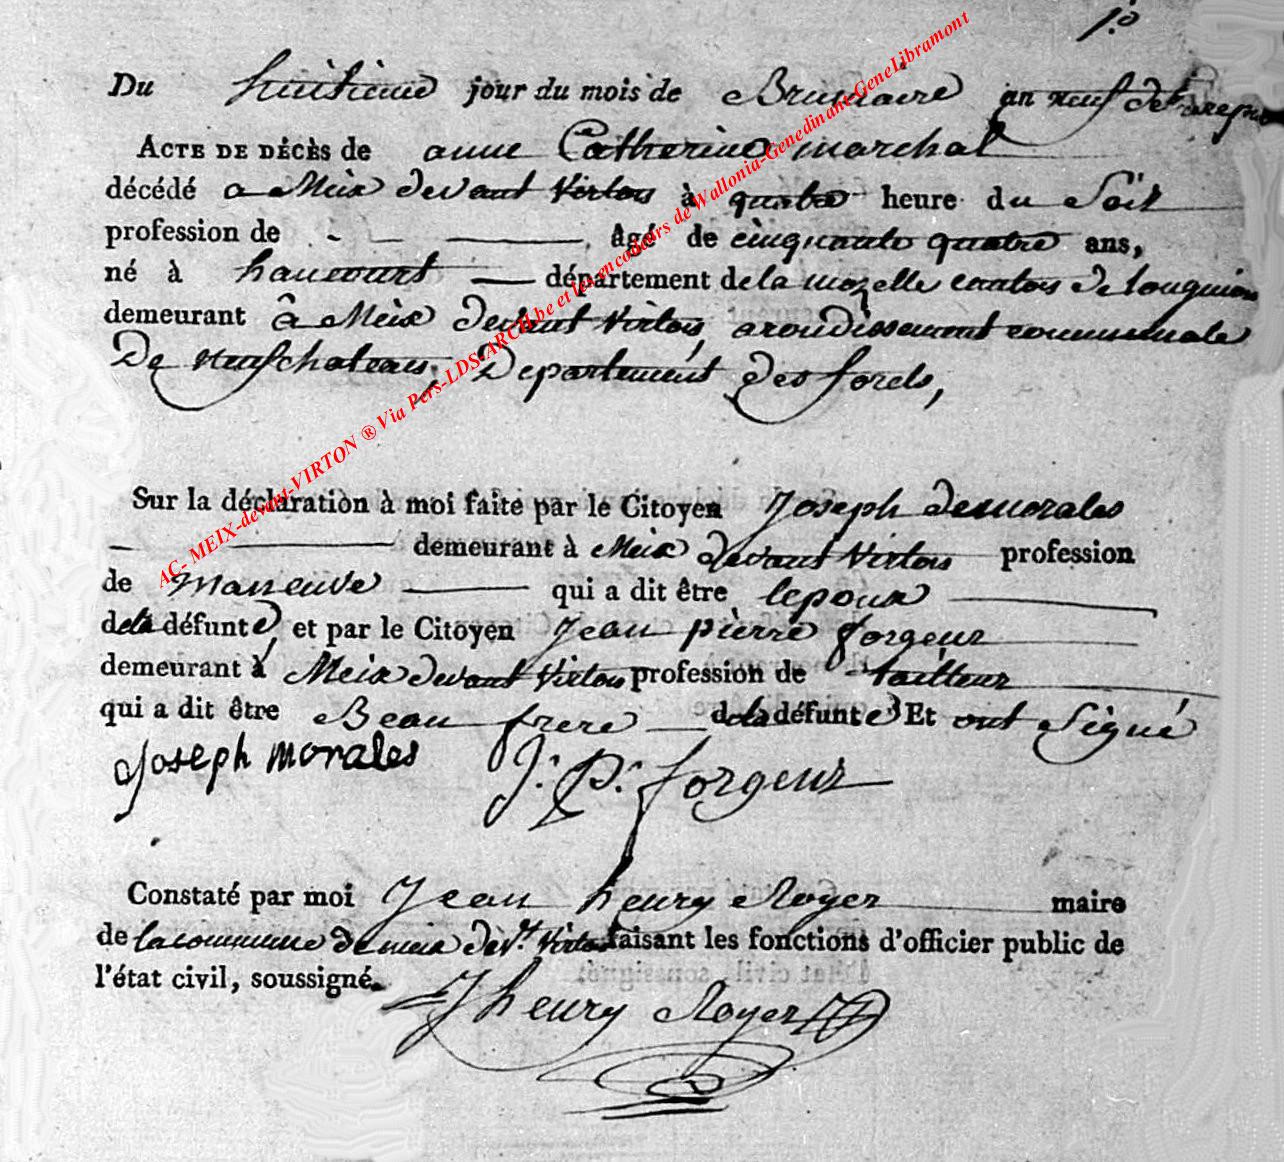 1.º
Du huitieme jour du mois de Brumaire an neuf de la repu
ACTE DE DÉCÈS de anne Catherine marchal
décédé a Meix devant Virton à quatre heure du Soir
profession de âgé de cinquante quatre ans,
né à haucourt département de la mozelle canton de Longuion
demeurant â Meix devant Virton, aroudissement communale
De neufchateau, Departement des forets,
Sur la déclaration à moi faite par le Citoyen Joseph demorales
demeurant à Meix devant Virton profession
de Maneuve qui a dit être lepoux
de la défunte, et par le Citoyen Jean pierre forgeur
demeurant à Meix devant Virton profession de tailleur
qui a dit être Beau frere de la défunte Et ont Signé
Joseph morales J. P. forgeur
Constaté par moi Jean henry Royer maire
de la commune de meix dev.t Virton faisant les fonctions d'officier public de
l'état civil, soussigné.
J henry Royer
AC- MEIX-devant-VIRTON ® Via Pers-LDS-ARCH.be et les encodeurs de Wallonia-Genedinant-GeneLibramont